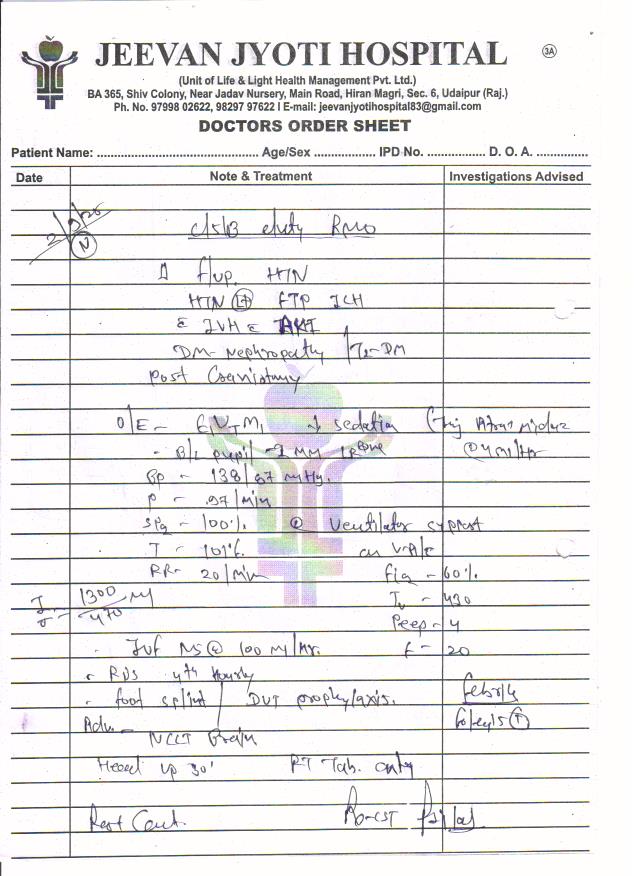 JEEVAN JYOTI HOSPITAL
3A
(Unit of Life & Light Health Management Pvt. Ltd.)
BA 365, Shiv Colony, Near Jadav Nursery, Main Road, Hiran Magri, Sec. 6, Udaipur (Raj.)
Ph. No. 97998 02622, 98297 97622 I E-mail: jeevanjyotihospital83@gmail.com
DOCTORS ORDER SHEET
Patient Name: ............................................. Age/Sex ................. IPD No. ................ D. O. A. ..............
Date Note & Treatment Investigations Advised
N
C/S/B duty RMO
HTN
HTN FTP ICH
c IVH c AKI
DM- Nephropathy / T2-DM
Post
O/E - E1VTM1 sedation
- B/L pupil
@ 4 ml/hr
Bp - 138/87 mmHg.
P - 97/min
SPO2 - 100%. @ Ventilator support
T - 101°F.
RR- 20/min FiO2 - 60%.
1300 ml
470
TV - 430
Peep - 4
- IVF NS @ 100 ml/hr. f - 20
- RBS 4th Hourly
- foot splint / DVT prophylaxis.
Adv. -
NCCT Brain
Head up 30° RT Tab. only
Rest Cont.